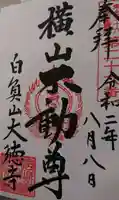 奉拝
令和二年八月八日
横山不動尊
白魚山大徳寺